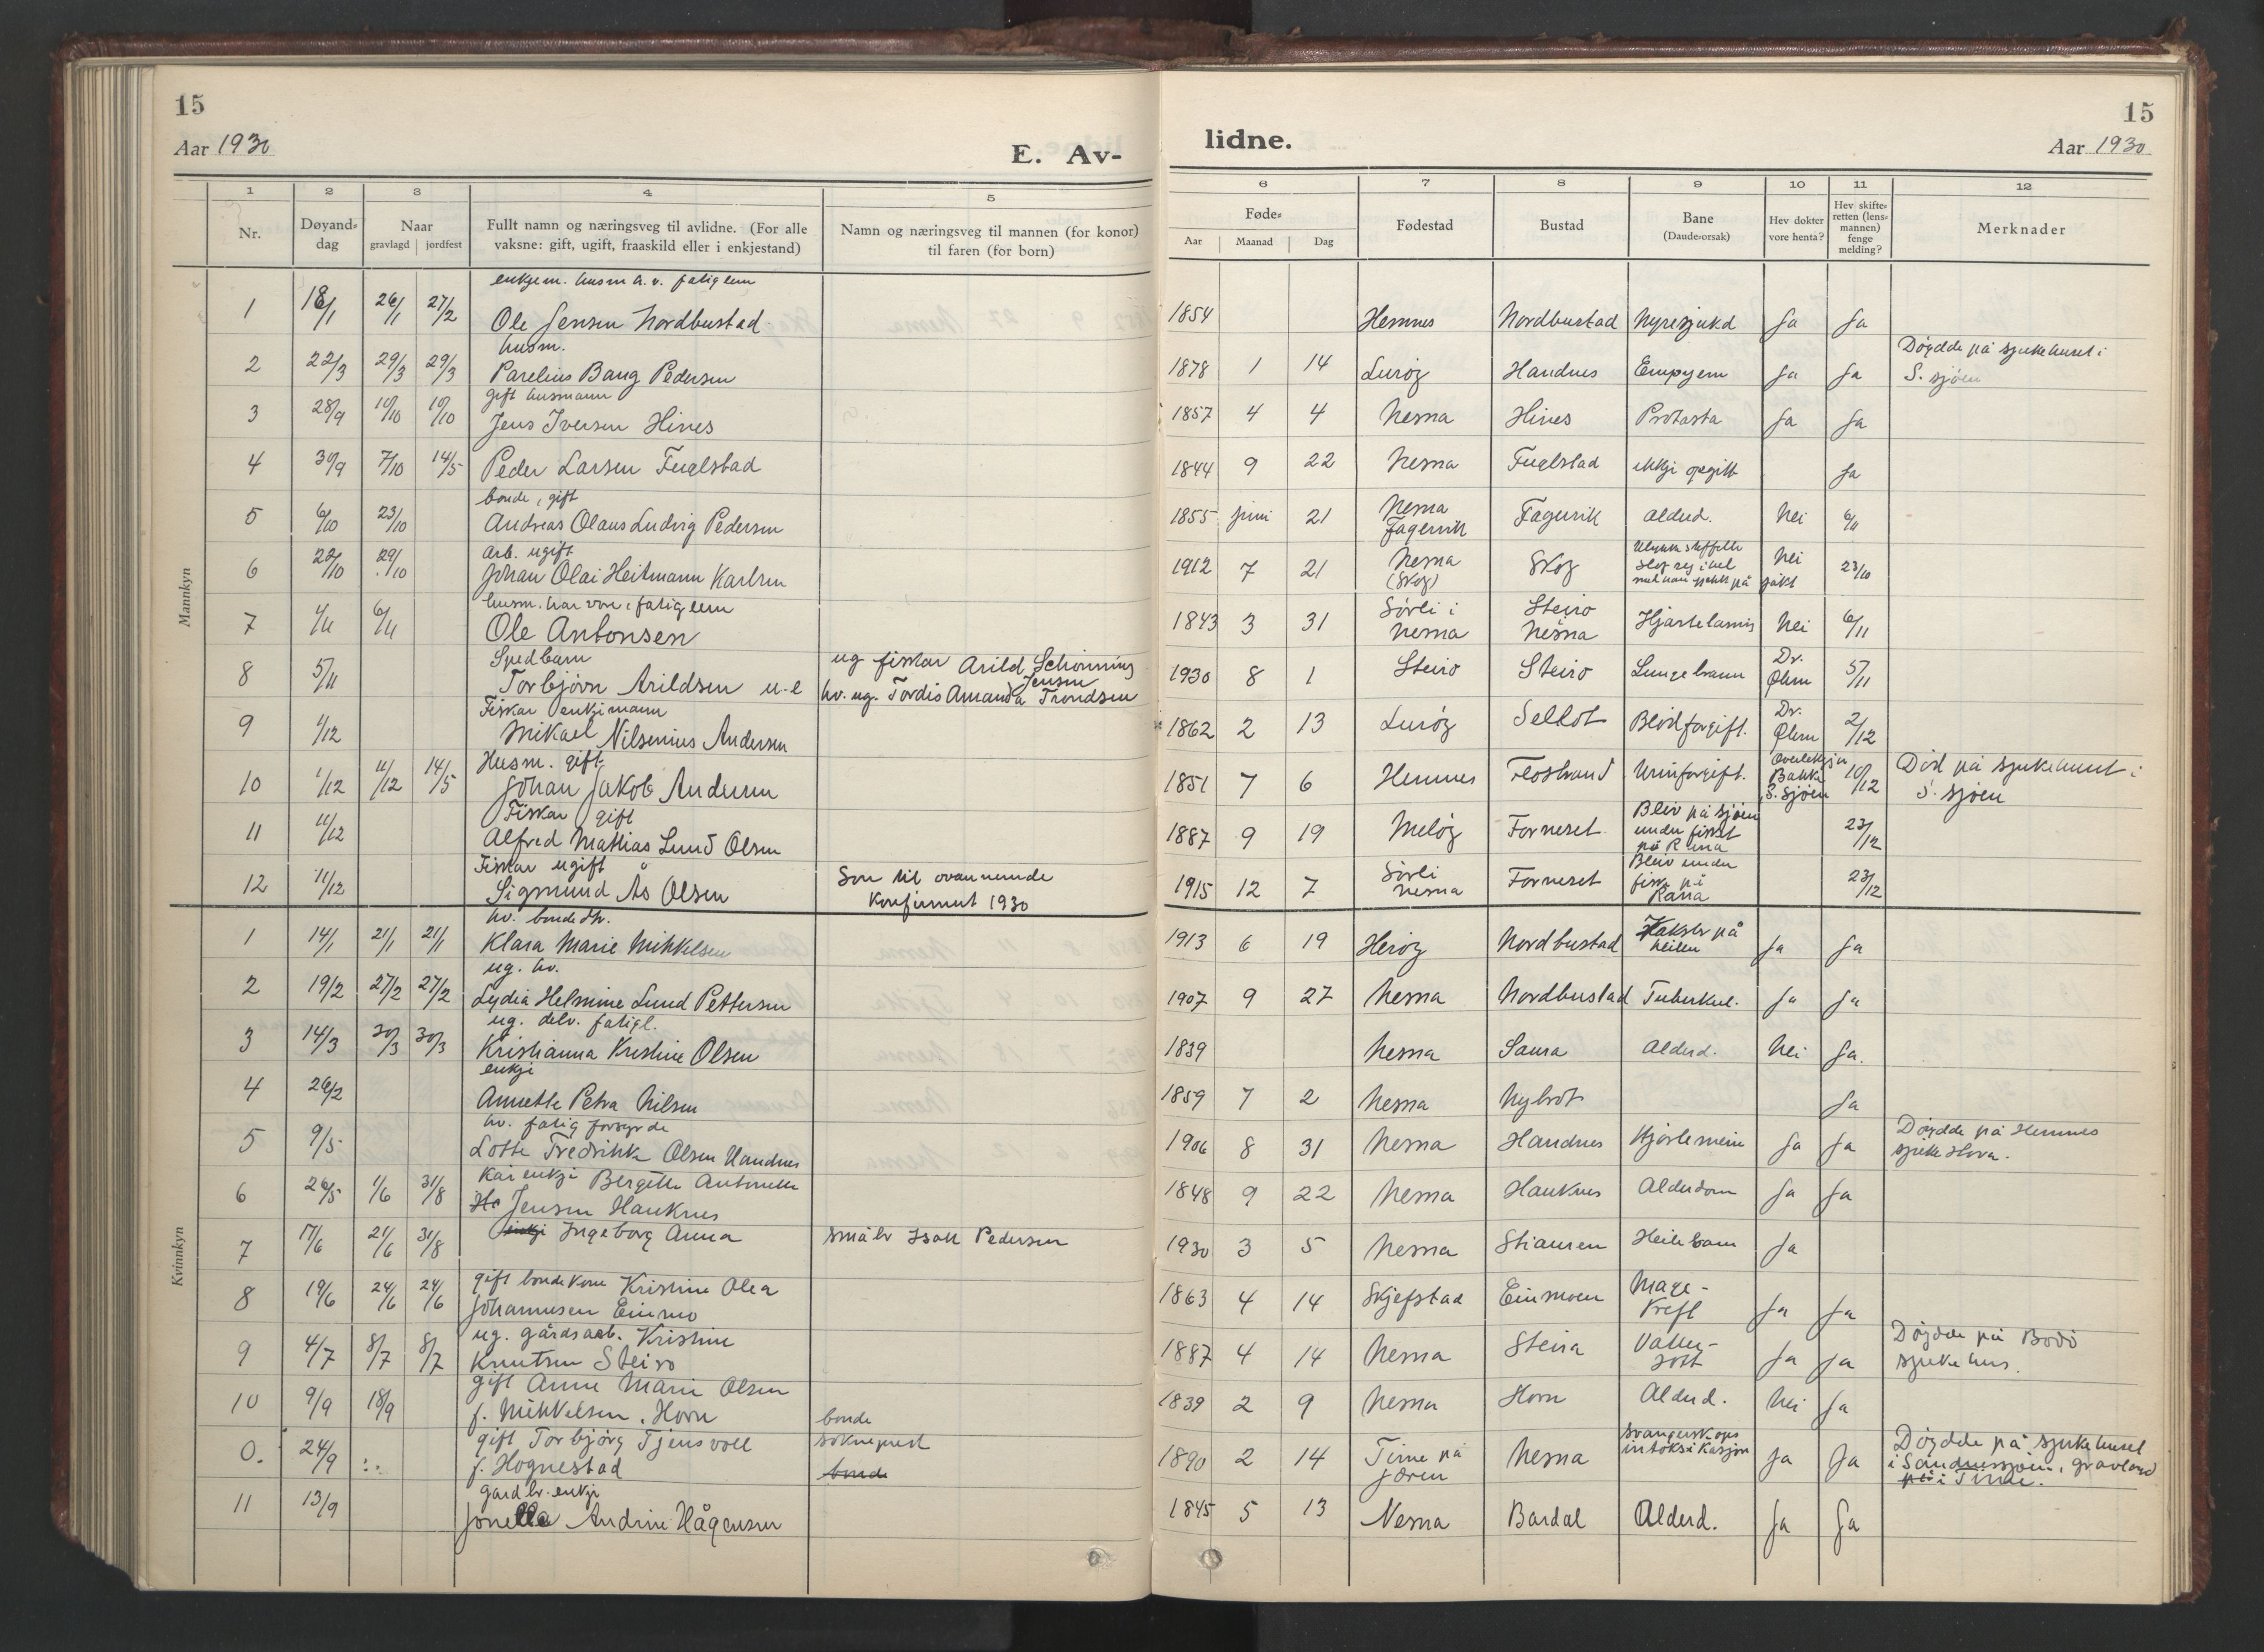 15
Aar 1930
E. Av-
1 2 3 4 5
Nr. Døyand-dag Naar gravlagd jordfest Fullt namn og næringsveg til avlidne. (For alle vaksne: gift, ugift, fraaskild eller i enkjestand) Namn og næringsveg til mannen (for konor) til faren (for born)
Mannkyn
enkjem. husm h. v. fatiglem
1 18/1 26/1 27/2 Ole Jensen Nordbustad
husm.
2 22/3 29/3 29/3 Parelius Bang Pedersen
gift husmann
3 28/9 10/10 10/10 Jens Iversen Hines
4 30/9 7/10 14/5 Peder Larsen Fuglstad
bonde, gift
5 6/10 23/10 Andreas Olaus Ludvig Pedersen
arb. ugift
6 22/10 29/10 Johan Olai Heitmann Karlsen
husm. har vore i fatiglem
7 4/11 6/11 Ole Antonsen
Spedbarn ug fiskar Arild Schønning Jensen
8 5/11 Torbjörn Arildsen u-e hv. ug. Tordis Amanda Trondsen
Fiskar enkjimann
9 1/12 Mikael Nilsenius Andersen
Husm. gift
10 1/12 11/12 14/5 Johan Jakob Andersen
Fiskar gift
11 11/12 Alfred Mathias Lund Olsen
Fiskar ugift
12 11/12 Sigmund Ås Olsen Son til ovannemnde
Konfirmert 1930
Kvinnkyn
hv. bondedtr.
1 14/1 21/1 21/1 Klara Marie Mikkelsen
ug. hv.
2 19/2 27/2 27/2 Lydia Helmine Lund Pettersen
ug. delv. fatigl.
3 14/3 30/3 30/3 Kristianna Kristine Olsen
enkji
4 26/2 Annette Petra Nilsen
hv. fatig forsyrde
5 9/5 Lotte Fredrikke Olsen Handnes
Kår enkji Bergitte Antonette
6 26/5 1/6 31/8 Jensen Hauknes
7 17/6 21/6 31/8 enkji Ingeborg Anna småbr Isak Pedersen
gift bondekone Kristine Olea
8 19/6 24/6 24/6 Johannesen Einmo
ug. gårdsarb. Kristine
9 4/7 8/7 8/7 Knutsen Steiro
gift Anne Marie Olsen
10 9/9 18/9 f. Mikkelsen, Horn bonde
gift Torbjörg Tjensvoll sokneprest
0. 24/9 f. Hognestad bonde
gardbr. enkje
11 13/9 Jonella Andrine Hågensen
lidne.
15
Aar 1930
6 7 8 9 10 11 12
Føde- Aar Maanad Dag Fødestad Bustad Bane (Daude-orsak) Hev dokter vore henta? Hev skifte-retten (lens-mannen) fenge melding? Merknader
1854 Hemnes Nordbustad Nyresjukd Ja Ja
1878 1 14 Lurøy Handnes Empyem Ja Ja Døydde på sjukehuset i
S. sjöen
1857 4 4 Nesna Hines Protasta Ja Ja
1844 9 22 Nesna Fuglstad ikkji opgitt Ja
1855 juni 21 Nesna Fagervik Fagervik alderd. Nei 6/11
1912 7 21 Nesna (Skog) Skog Ulukkestilfelle slog seg i hel Nei 23/10
1843 3 31 Sörli i Nesna Steiro Nesna Hjartelamig Nei 6/11
1930 8 1 Steiro Steiro Lungebrann Dr. Øhrn 5/11
1862 2 13 Lurøy Selbot Blodforgift. Dr. Øhrn 2/12
1851 7 6 Hemnes Flostrand Urinforgift. Overlækja Bakke S. Sjöen 10/12 Död på sjukehuset i
S. sjöen
1887 9 19 Meløy Forneset Bleiv på sjöen under fisket på Rana 23/12
1915 12 7 Sörli Nesna Forneset Bleiv under fiske på Rana 23/12
1913 6 19 Herøy Nordbustad på heilen Ja Ja
1907 9 27 Nesna Nordbustad Tuberkul. Ja Ja
1839 Nesna Saura Alderd. Nei Ja.
1859 7 2 Nesna Nybrot Ja
1906 8 31 Nesna Handnes Hjartemein Ja Ja Døydde på Hemnes
sjukestova.
1848 9 22 Nesna Hauknes Alderdom Ja Ja
1930 3 5 Nesna Stiauren Ja
1863 4 14 Skjefstad Einmoen Mage-kreft Ja Ja
1887 4 14 Nesna Steira Vatter-sott Ja Ja Døydde på Bodö
sjukehus.
1839 2 9 Nesna Horn Alderd. Nei Ja
1890 2 14 Time på Jæren Nesna Svangerskaps intoksikasjon Ja Ja Døydde på sjukehuset
i Sandnessjöen, gravlagd
på i Time.
1845 5 13 Nesna Bardal Alderd. Ja Ja